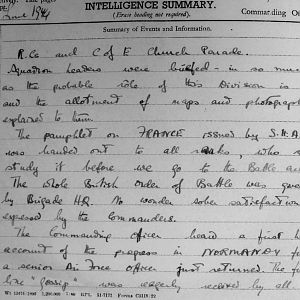 INTELLIGENCE SUMMARY.
(Erase heading not required).
Commanding O
June 1944
Summary of Events and Information.
R.Cs and C of E Church Parade.
Squadron Leaders were briefed - in so mu
as the probable role of this Division is
and the allotment of maps and photograph
explained to them.
The pamphlet on FRANCE issued by S.H.A
was handed out to all ranks, who
study it before we go to the Battle
The whole British Order of Battle was give
by Brigade HQ. No wonder sober satisfaction
expressed by the Commanders.
The Commanding Officer heard a first h
account of the progress in NORMANDY f
a senior Air Force officer just returned. The f
line "gossip" was eagerly received by all.